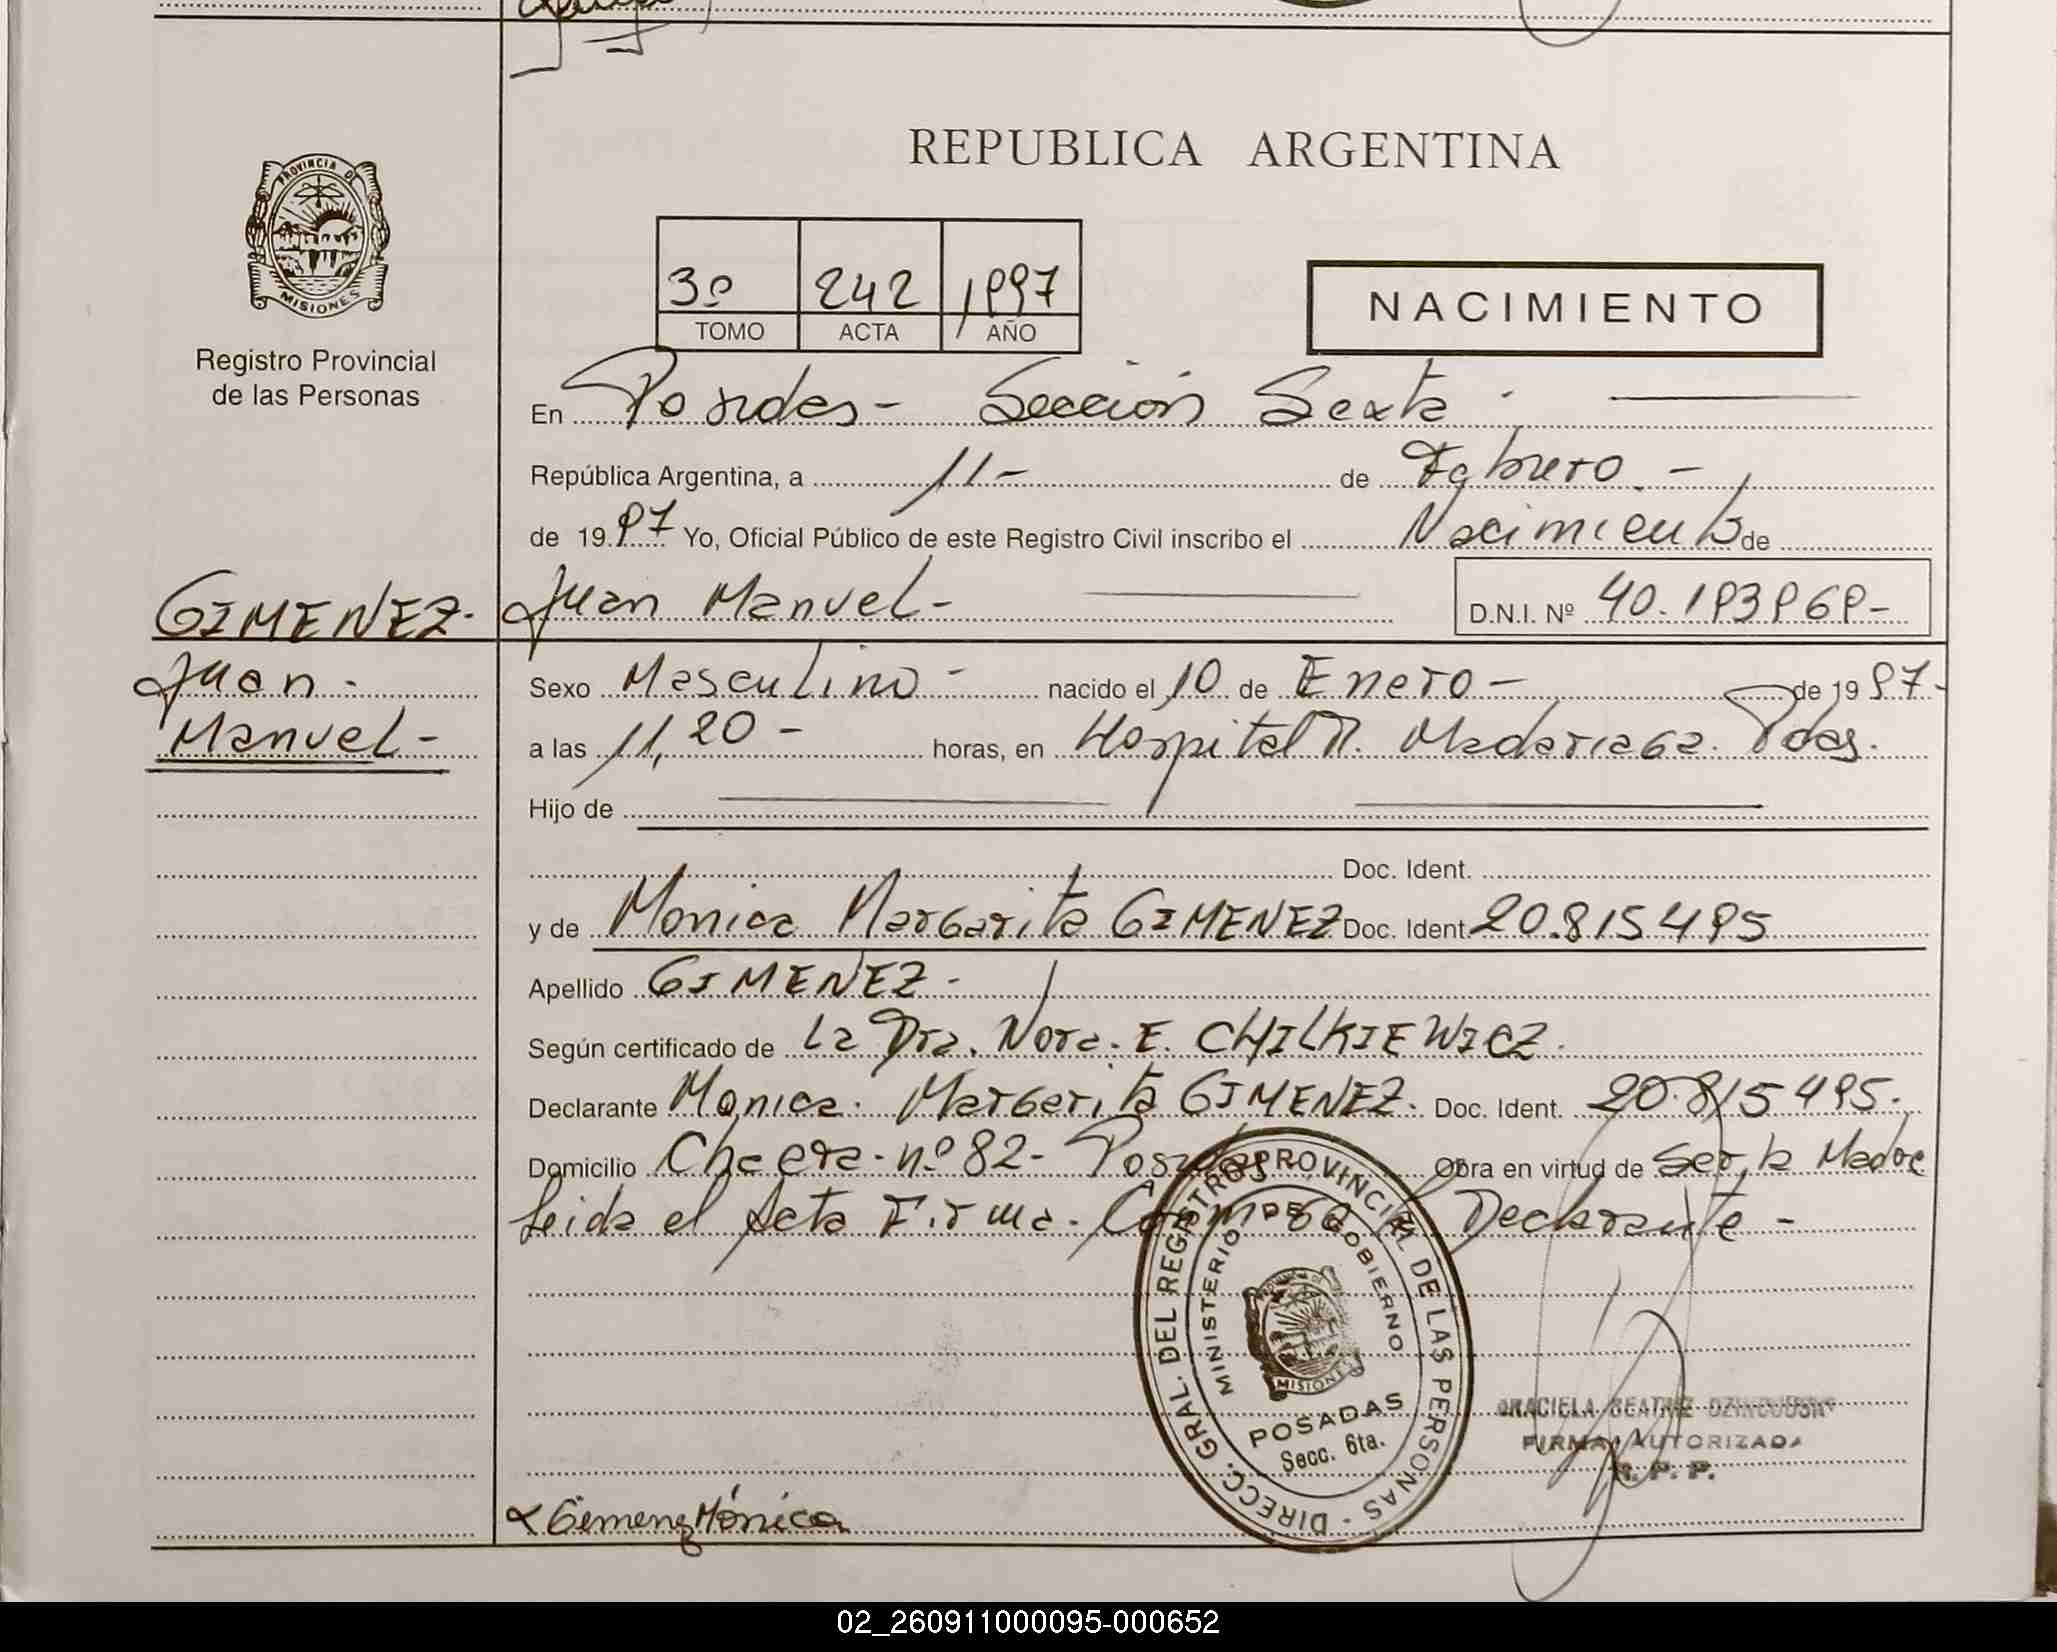 REPUBLICA ARGENTINA
PROVINCIA DE
MISIONES
Registro Provincial
de las Personas
3º 242 1997
TOMO ACTA AÑO
NACIMIENTO
En Posadas - Sección Sexta -
República Argentina, a 11 - de Febrero. -
de 1997 Yo, Oficial Público de este Registro Civil inscribo el Nacimiento de
GIMENEZ. Juan Manuel - D.N.I. Nº 40.193969 -
Juan - Sexo Masculino - nacido el 10 de Enero - de 1997 -
Manuel - a las 11,20 - horas, en Hospital R. Madariaga. Pdas.
Hijo de
Doc. Ident.
y de Monica Margarita GIMENEZ Doc. Ident. 20.815495
Apellido GIMENEZ -
Según certificado de La Dra. Nora. E. CHILKIEWICZ.
Declarante Monica. Margarita GIMENEZ. Doc. Ident. 20.815495.
Domicilio Chacra - nº 82 - Posadas Obra en virtud de Ser la Madre
Leida el Acta Firma. Conmigo la Declarante -
DIRECC. GRAL. DEL REGISTRO PROVINCIAL DE LAS PERSONAS -
MINISTERIO DE GOBIERNO
MISIONES
POSADAS
Secc. 6ta.
GRACIELA BEATRIZ
FIRMA AUTORIZADA
R. P. P.
Gimenez Mónica
02_260911000095-000652